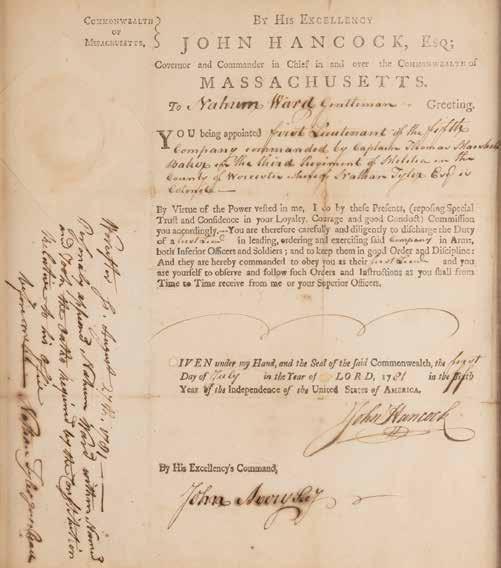 COMMONWEALTH
OF
MASSACHUSETTS,
BY HIS EXCELLENCY
JOHN HANCOCK, ESQ;
Governor and Commander in Chief in and over the COMMONWEALTH of
MASSACHUSETTS.
To Nahum Ward Gentleman Greeting.
YOU being appointed first Lieutenant of the fifth
Company commanded by Captain Thomas Marshall
Baker in the third Regiment of Militia in the
County of Worcester whereof Nathan Tyler Esqr is
Colonel
By Virtue of the Power vested in me, I do by these Presents, (reposing Special
Trust and Confidence in your Loyalty, Courage and good Conduct) Commission
you accordingly.—You are therefore carefully and diligently to discharge the Duty
of a first Lieut in leading, ordering and exercising said Company in Arms,
both Inferior Officers and Soldiers; and to keep them in good Order and Discipline:
And they are hereby commanded to obey you as their first Lieut and you
are yourself to observe and follow such Orders and Instructions as you shall from
Time to Time receive from me or your Superior Officers.
GIVEN under my Hand, and the Seal of the said Commonwealth, the first
Day of July in the Year of LORD, 1781 in the
Year of the Independence of the United States of AMERICA.
John Hancock
By His Excellency's Command,
John Avery Secy
Worcester Ss August 27th
Personally appeared Nahum Ward within Named
and took the Oaths required by the Constitution
relative to his office
before me